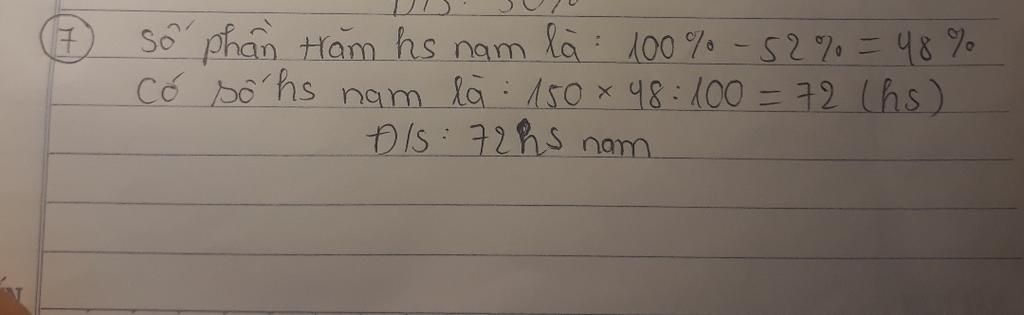 Đ/S: 50%
7 Số phần trăm hs nam là: 100% - 52% = 48%
Có số hs nam là: 150 × 48 : 100 = 72 (hs)
Đ/S: 72 hs nam